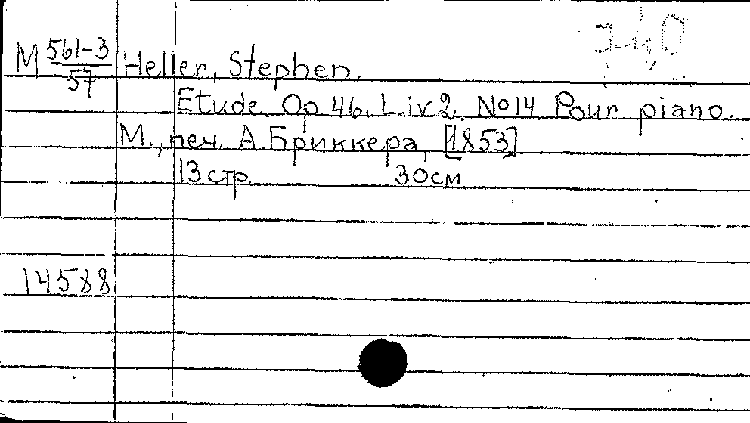 М 561-3/57 Heller, Stephen.
Etude. Op 46. Liv 2. №14 Pour piano.
М., печ. А. Бриккера, [1853]
13 стр. 30 см
14588